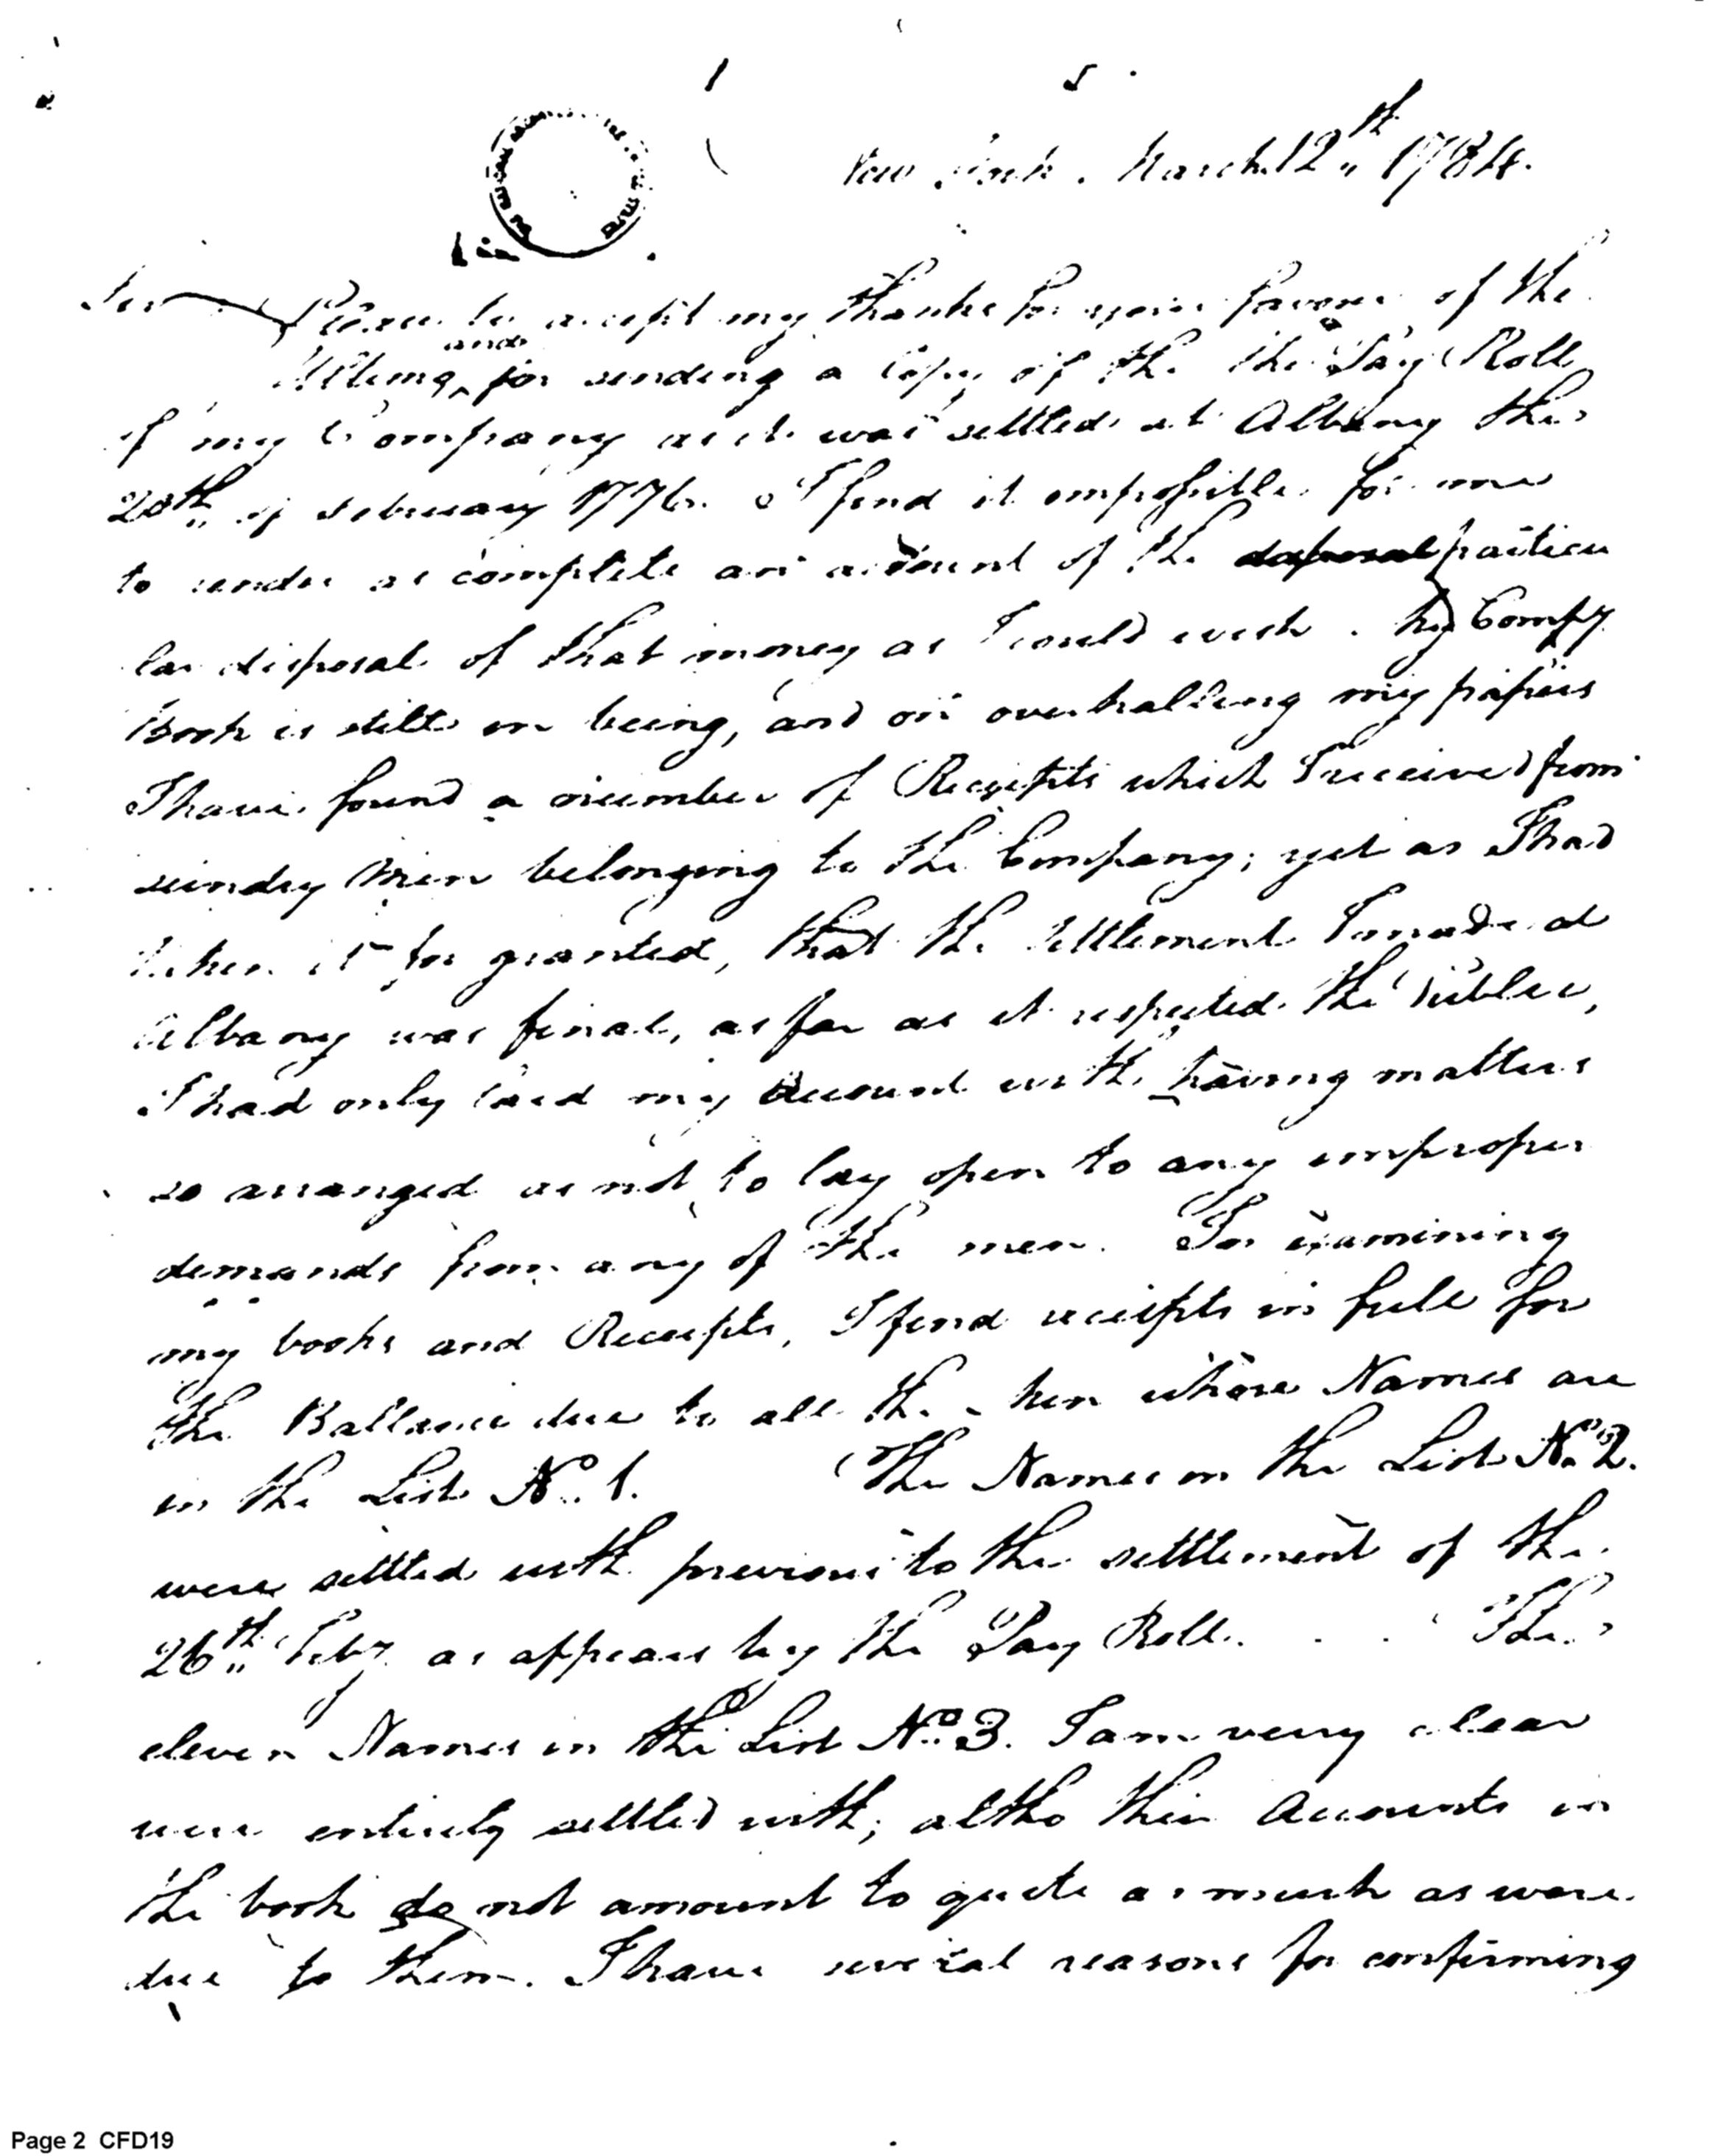 New York. March 12th 1784.
Sir
Please to accept my thanks for your favour of the
Ultimo, and for sending a Copy of the the Pay Roll
of my Company as it was settled at Albany the
20th of February 1776. I find it impossible for me
to render as complete an account of the particu
lar disposal of that money as I could wish. My Compy
Book is still in being, and on overhalling my papers
I have found a number of Receipts which I received from
sundry Men belonging to the Company; yet as I had
taken it for granted, that the settlement I made at
Albany was final, as far as it respected the Public,
I had only laid my Account with having matters
so arranged as not to lay open to any improper
demands from any of the men. In examining
my books and Receipts, I find receipts in full for
the Ballance due to all the Men whose Names are
in the List No. 1. The Names in the List No. 2.
were settled with previous to the settlement of the
26th Feby as appears by the Pay Roll. The
eleven Names in the List No. 3. I am very clear
were entirely settled with; altho their Accounts in
the book do not amount to quite as much as were
due to them. I have several reasons for confirming
Page 2 CFD19